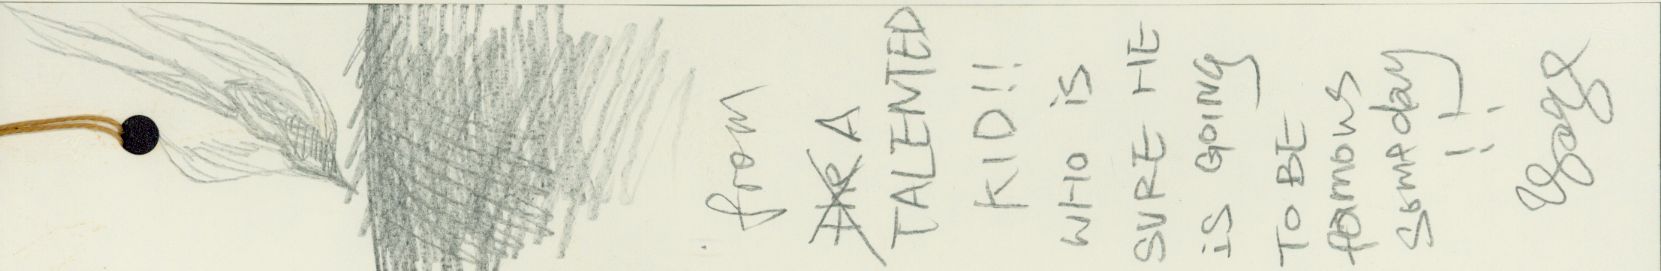 from
A
TALENTED
KID!!
WHO is
SURE HE
is GOING
TO BE
famous
Someday
!!!